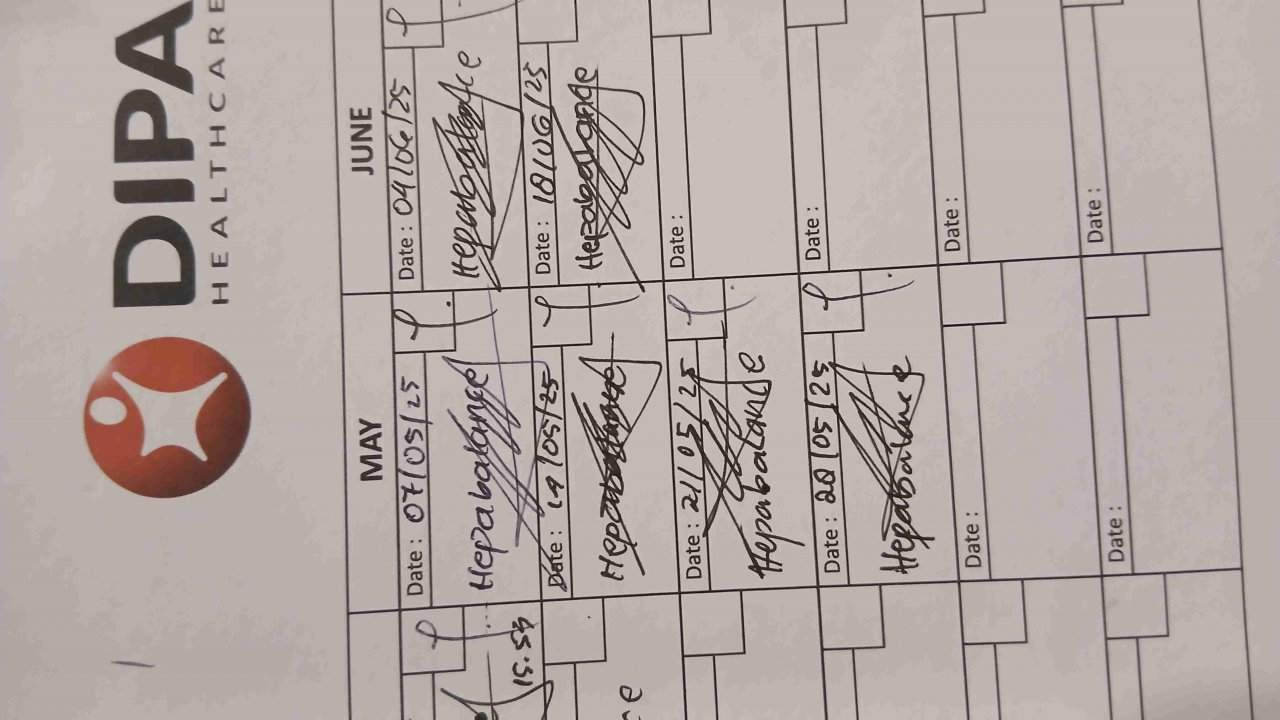 DIPA
HEALTHCARE
MAY
JUNE
Date : 07/05/25
Hepabalance
Date : 04/06/25
Hepabalance
15.53
Date : 14/05/25
Hepabalance
Date : 18/06/25
Hepabalance
Date : 21/05/25
Hepabalance
Date :
Date : 28/05/25
Hepabalance
Date :
Date :
Date :
Date :
Date :